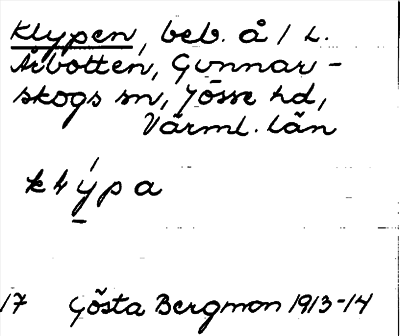 Klypen, beb. å / L.
Årbotten, Gunnar-
skogs sn, Jösse hd,
Värml. län
klýpa
17 Gösta Bergman 1913-14